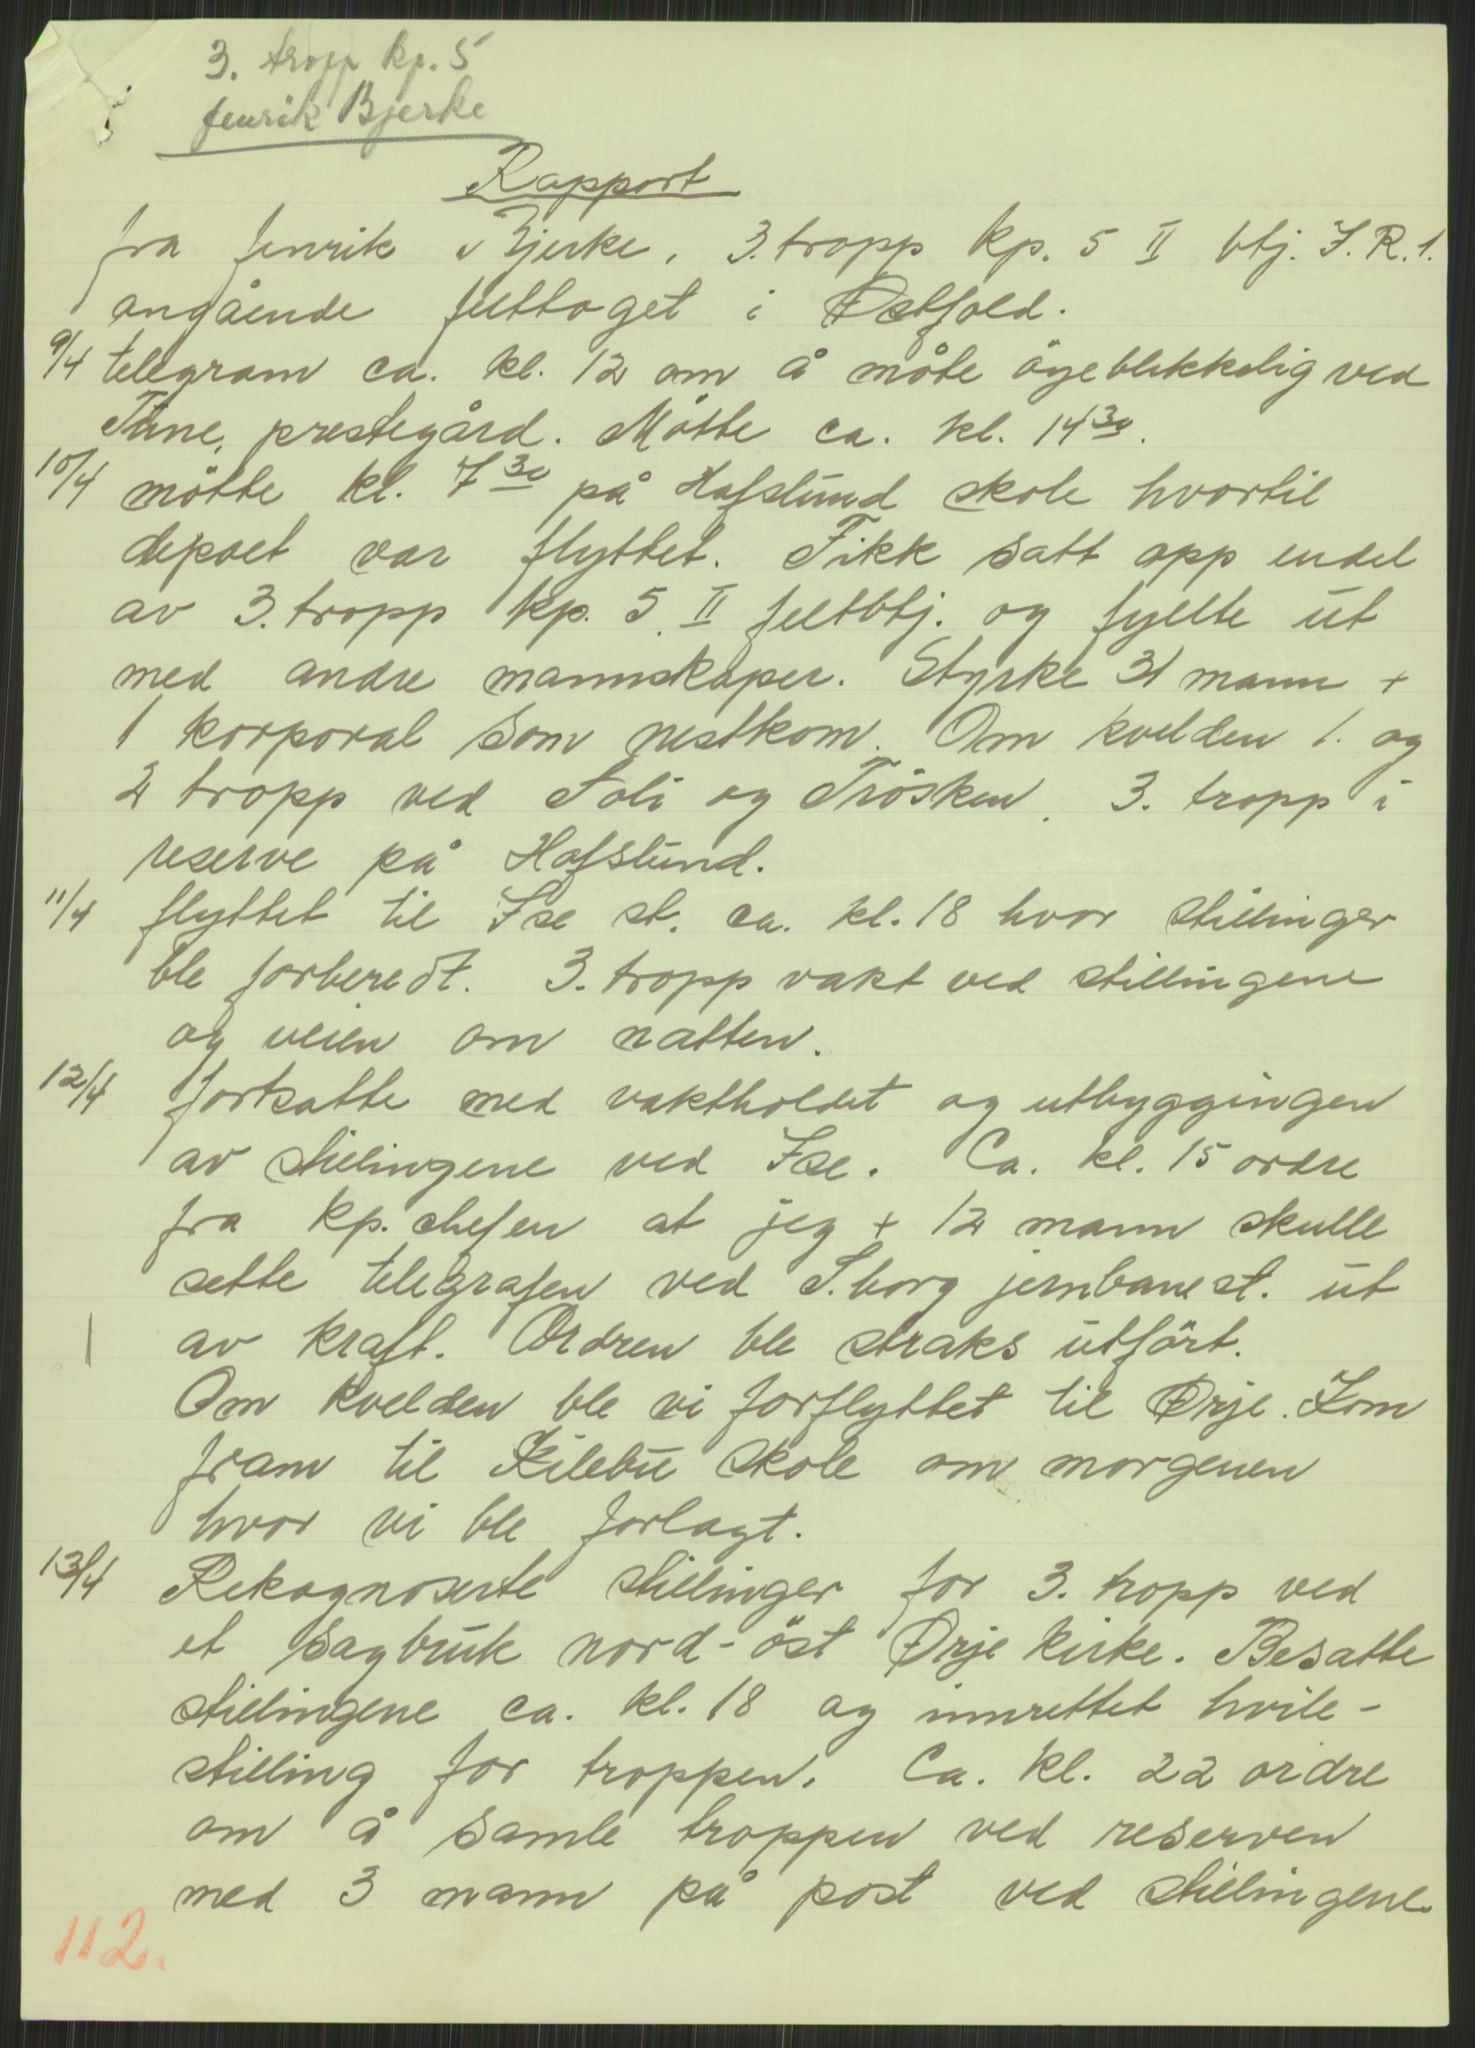 3. tropp kp. 5
fenrik Bjerke
Rapport
fra fenrik Bjerke, 3. tropp kp. 5 II btj. I.R.1.
angående felttoget i Østfold.
9/4 telegram ca. kl. 12 om å møte öyeblikkelig ved
Tune, prestegård. Møtte ca. kl. 14 30.
10/4 møtte kl. 7 30 på Hafslund skole hvortil
depoet var flyttet. Fikk satt opp endel
av 3. tropp kp. 5. II feltbtj. og fyllte ut
med andre mannskaper. Styrke 31 mann +
1 korporal som nestkom. Om kvelden 1. og
2 tropp ved Soli og Trösken. 3. tropp i
reserve på Hafslund.
11/4 flyttet til Ise st. ca. kl. 18 hvor stillinger
ble forberedt. 3. tropp vakt ved stillingene
og veien om natten.
12/4 fortsatte med vaktholdet og utbyggingen
av stillingene ved Ise. Ca. kl. 15 ordre
fra kp. chefen at jeg + 12 mann skulle
sette telegrafen ved S.borg jernbanest. ut
av kraft. Ordren ble straks utfört.
Om kvelden ble vi forflyttet til Ørje. Kom
fram til Kilebu skole om morgenen
hvor vi ble forlagt.
13/4 Rekognoserte stillinger for 3. tropp ved
et sagbruk nord-öst Ørje kirke. Besatte
stillingene ca. kl. 18 og innrettet hvile-
stilling for troppen. Ca. kl. 22 ordre
om å samle troppen ved reserven
med 3 mann på post ved stillingene.
112.